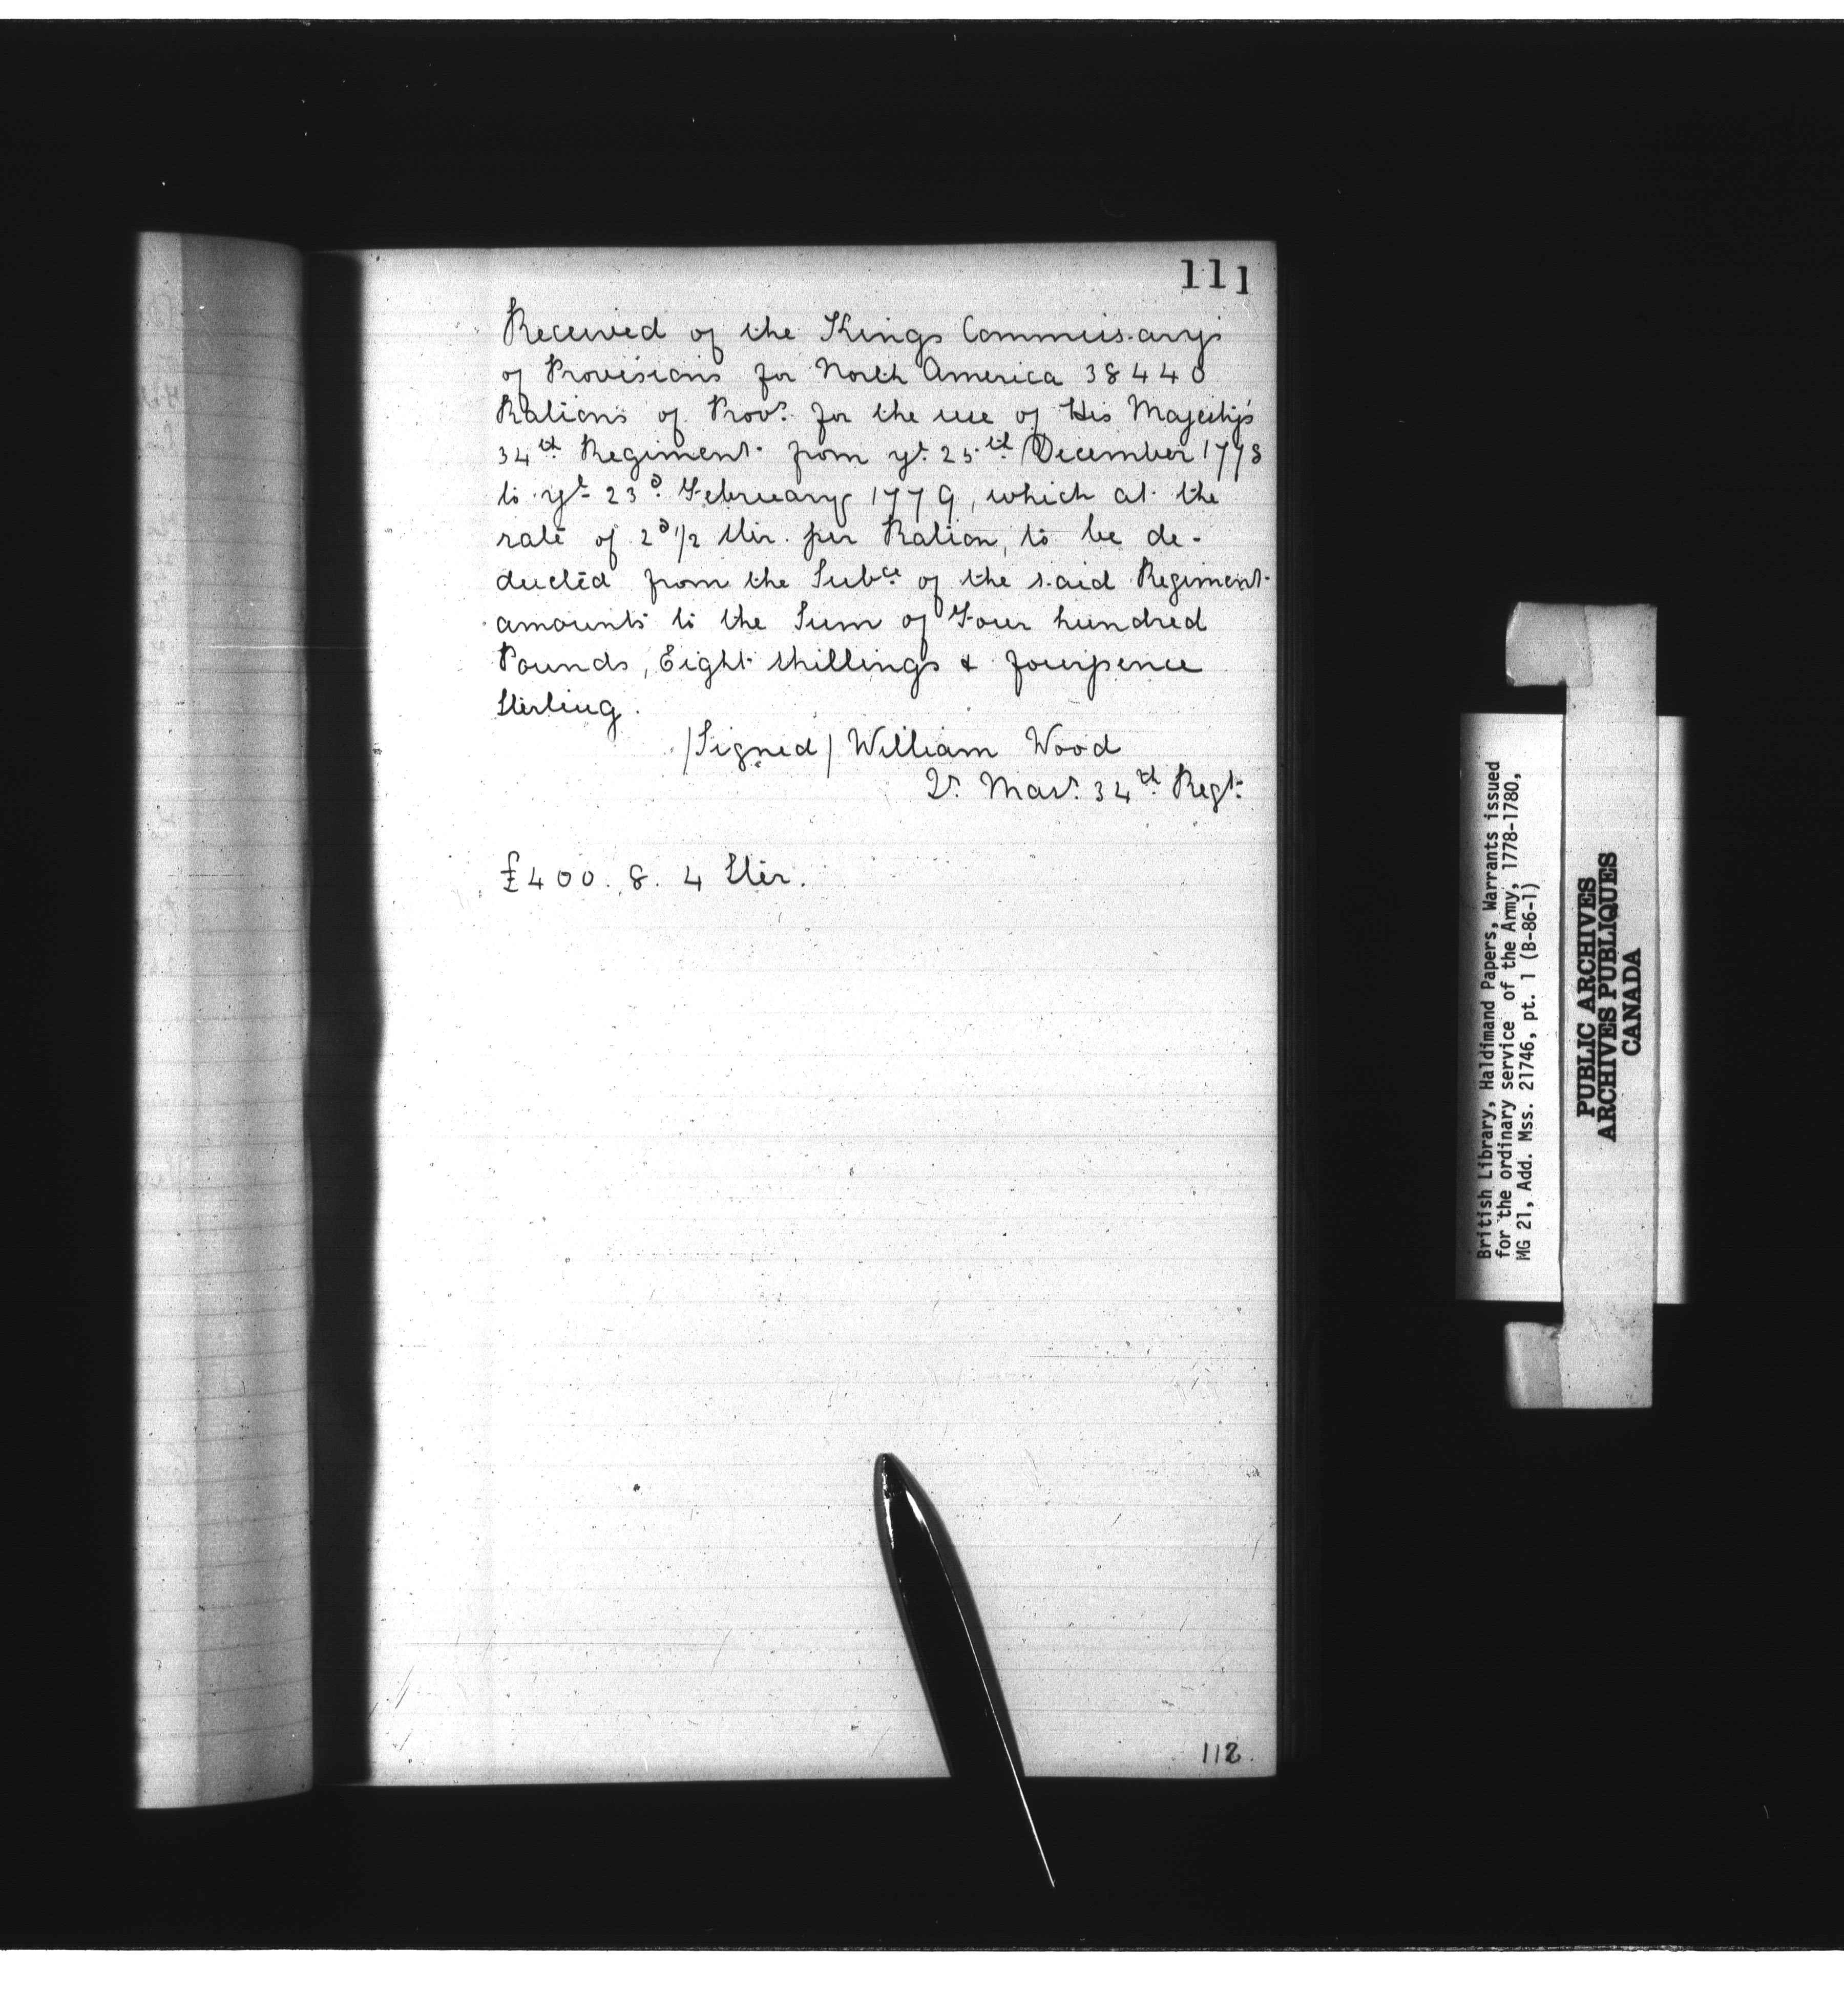 111
Received of the Kings Commissarys
of Provisions for North America 38440
Rations of Provs. for the use of His Majesty's
34th Regiment from yt. 25th December 1778
to yt 23d February 1779, which at the
rate of 2d 1/2 Ster. per Ration, to be de-
ducted from the Subce of the said Regiment
amounts to the Sum of Four hundred
Pounds, Eight shillings & fourpence
Sterling.
/Signed/ William Wood
Qr. Masr. 34th Regt.
£400. 8. 4 Ster.
112.
British Library, Haldimand Papers, Warrants issued
for the ordinary service of the Army, 1778-1780,
MG 21, Add. Mss. 21746, pt. 1 (B-86-1)
PUBLIC ARCHIVES
ARCHIVES PUBLIQUES
CANADA